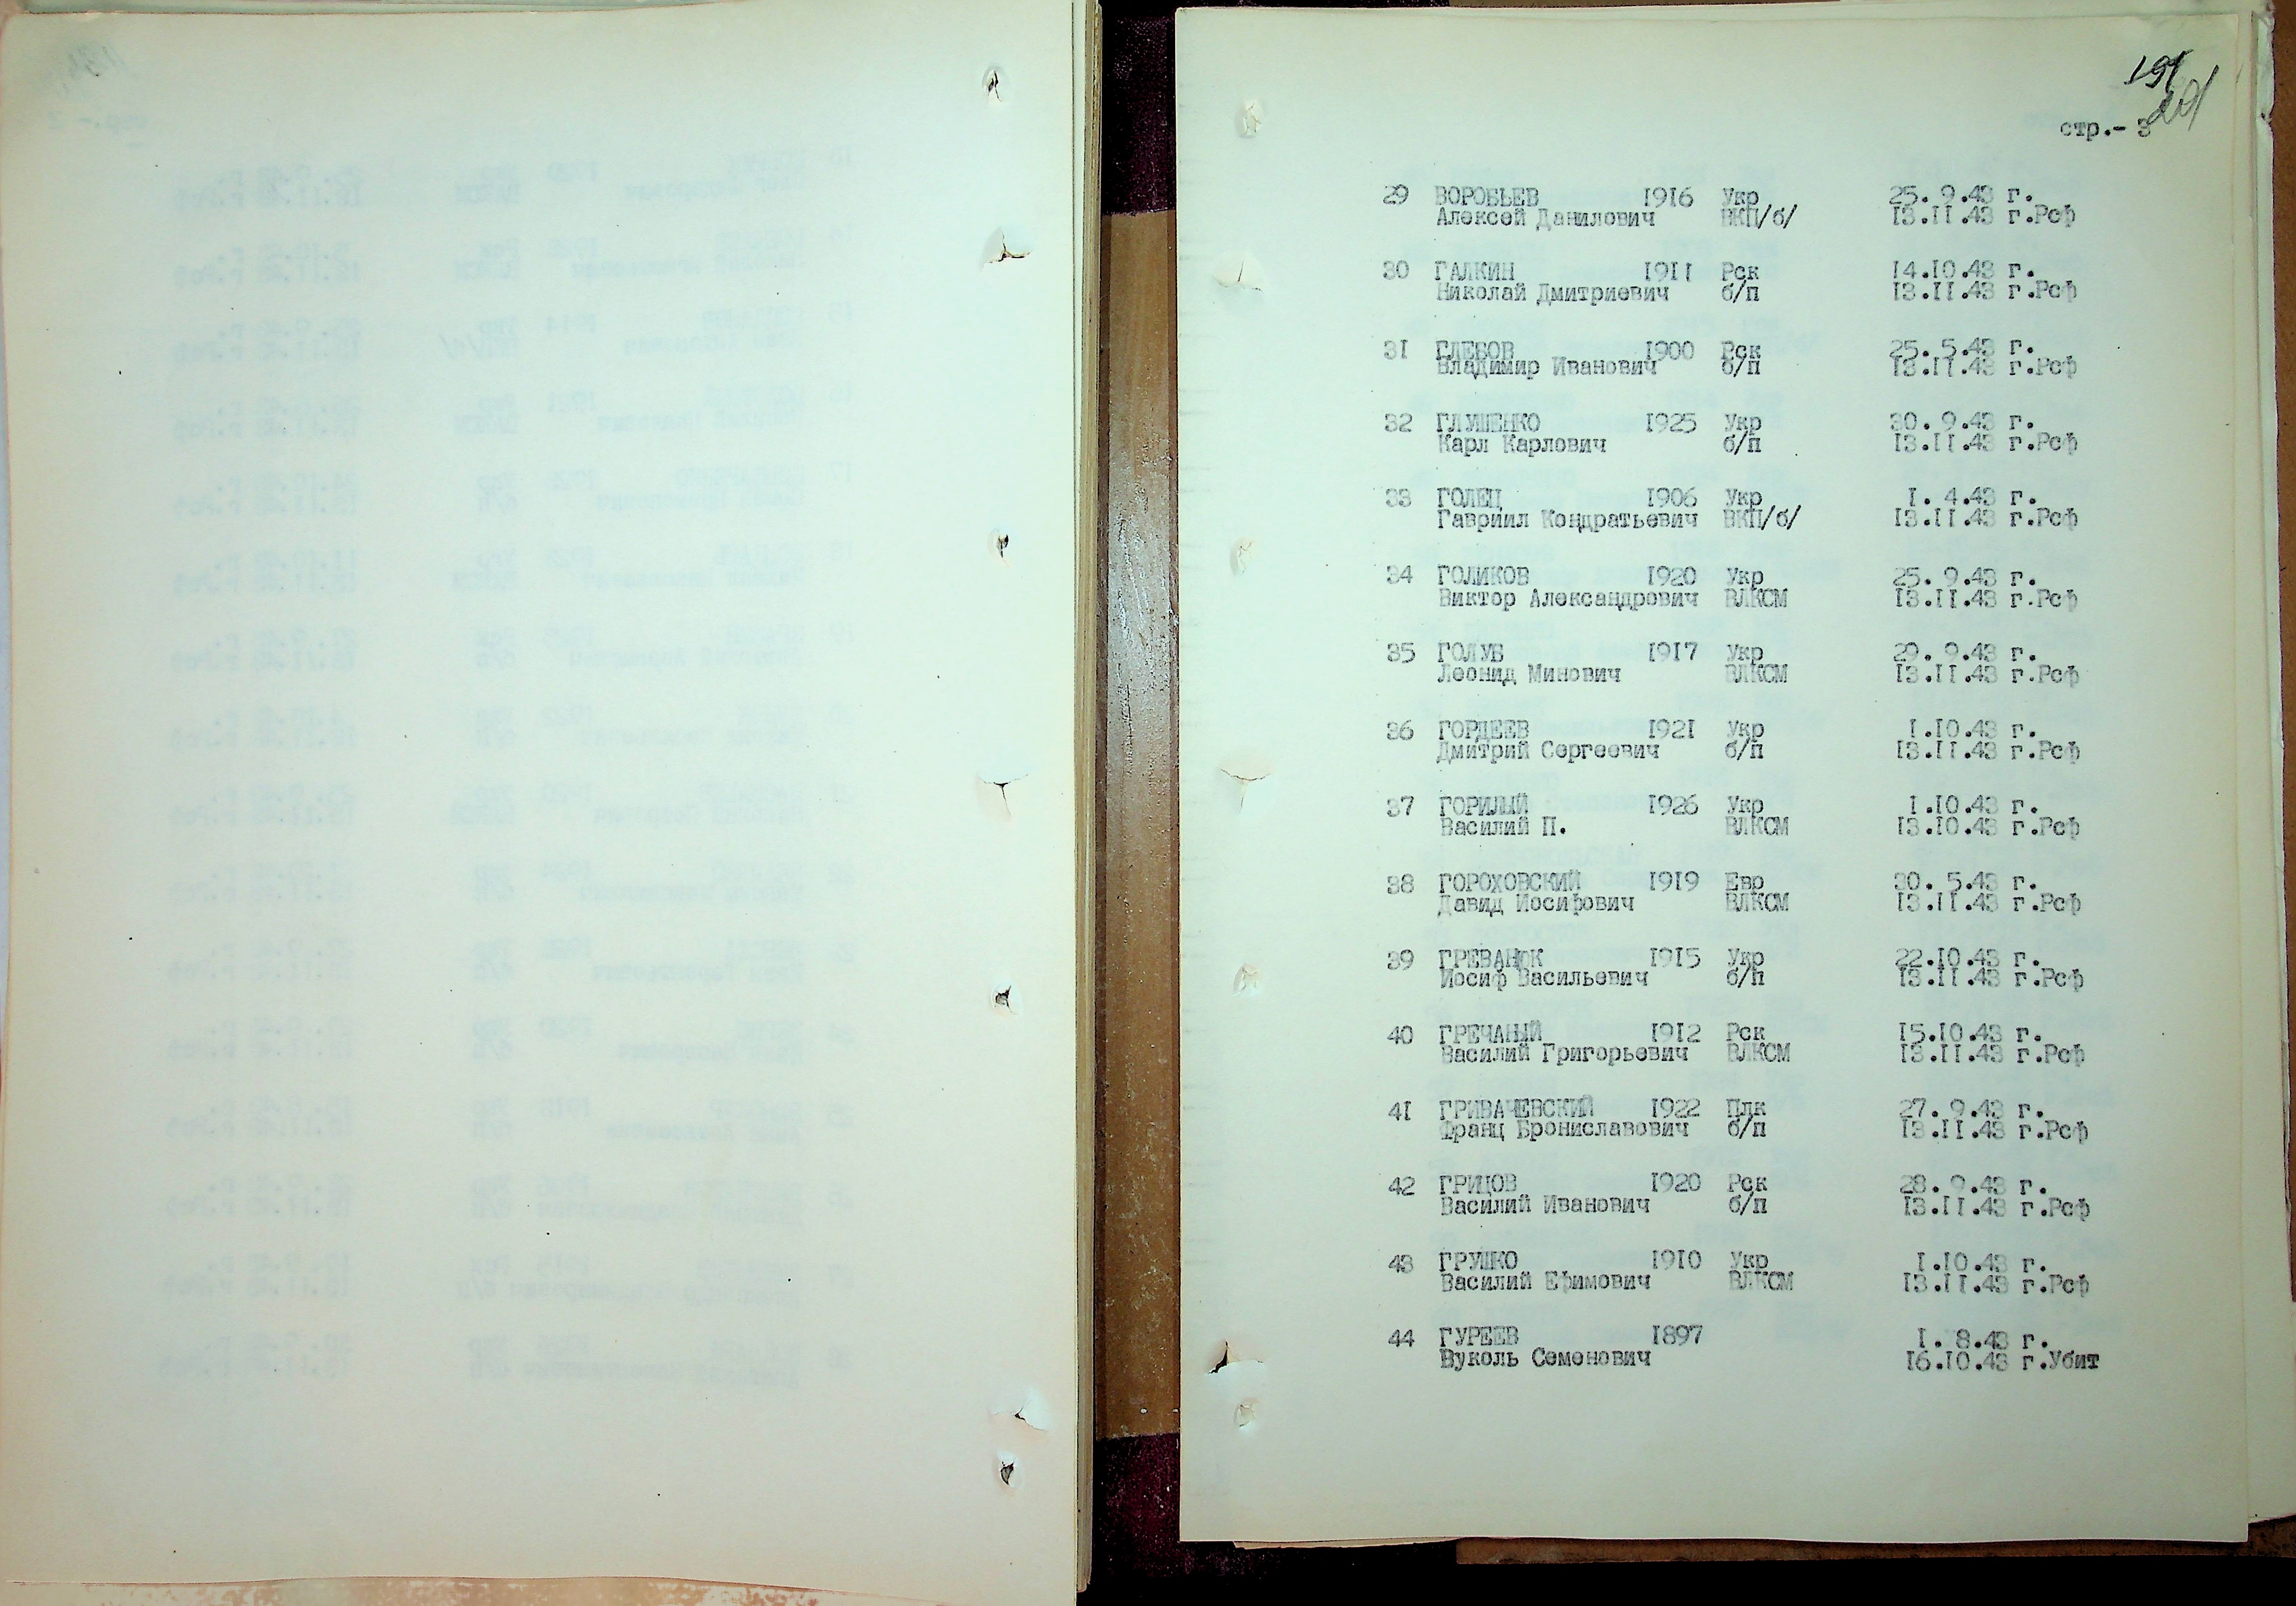 191
201
стр.- 3
29 ВОРОБЬЕВ 1916 Укр 25. 9.43 г.
Алексей Данилович ВКП/б/ 13.11.43 г.Рсф
30 ГАЛКИН 1911 Рск 14.10.43 г.
Николай Дмитриевич б/п 13.11.43 г.Рсф
31 ГЛЕБОВ 1900 Рск 25. 5.43 г.
Владимир Иванович б/п 13.11.43 г.Рсф
32 ГЛУШЕНКО 1925 Укр 30. 9.43 г.
Карл Карлович б/п 13.11.43 г.Рсф
33 ГОЛЕЦ 1906 Укр 1. 4.43 г.
Гавриил Кондратьевич ВКП/б/ 13.11.43 г.Рсф
34 ГОЛИКОВ 1920 Укр 25. 9.43 г.
Виктор Александрович ВЛКСМ 13.11.43 г.Рсф
35 ГОЛУБ 1917 Укр 29. 9.43 г.
Леонид Минович ВЛКСМ 13.11.43 г.Рсф
36 ГОРДЕЕВ 1921 Укр 1.10.43 г.
Дмитрий Сергеевич б/п 13.11.43 г.Рсф
37 ГОРИЛЫЙ 1926 Укр 1.10.43 г.
Василий П. ВЛКСМ 13.10.43 г.Рсф
38 ГОРОХОВСКИЙ 1919 Евр 30. 5.43 г.
Давид Иосифович ВЛКСМ 13.11.43 г.Рсф
39 ГРЕВАНЮК 1915 Укр 22.10.43 г.
Иосиф Васильевич б/п 13.11.43 г.Рсф
40 ГРЕЧАНЫЙ 1912 Рск 15.10.43 г.
Василий Григорьевич ВЛКСМ 13.11.43 г.Рсф
41 ГРИВАЧЕВСКИЙ 1922 Плк 27. 9.43 г.
Франц Брониславович б/п 13.11.43 г.Рсф
42 ГРИЦОВ 1920 Рск 28. 9.43 г.
Василий Иванович б/п 13.11.43 г.Рсф
43 ГРУШКО 1910 Укр 1.10.43 г.
Василий Ефимович ВЛКСМ 13.11.43 г.Рсф
44 ГУРЕЕВ 1897 1. 8.43 г.
Вуколь Семенович 16.10.43 г.Убит